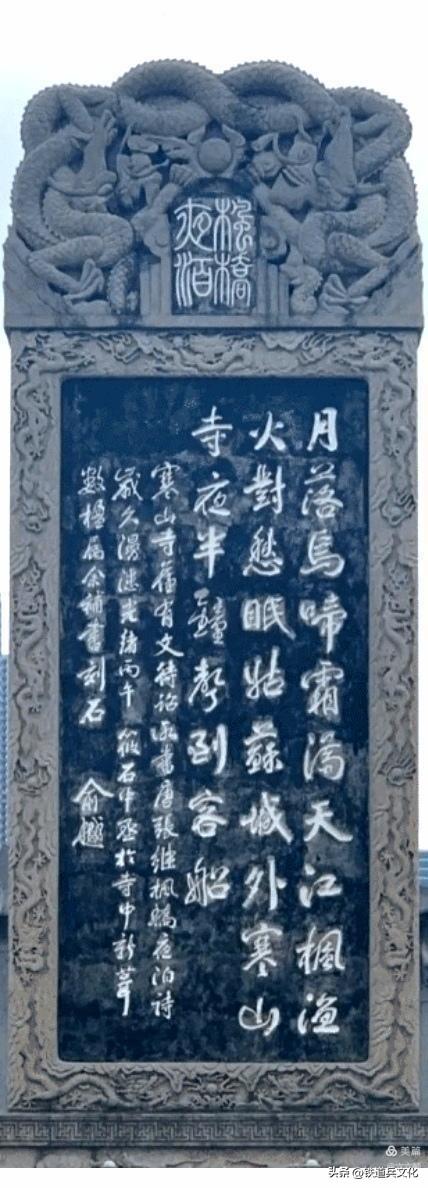 楓橋
夜泊
月落烏啼霜滿天江楓漁
火對愁眠姑蘇城外寒山
寺夜半鐘聲到客船
寒山寺舊有文待詔所書唐張継楓橋夜泊詩
歲久漫漶光緒丙午筱石中丞於寺中新葺
數楹屬余補書刻石 俞樾
美篇
头条 @铁道兵文化